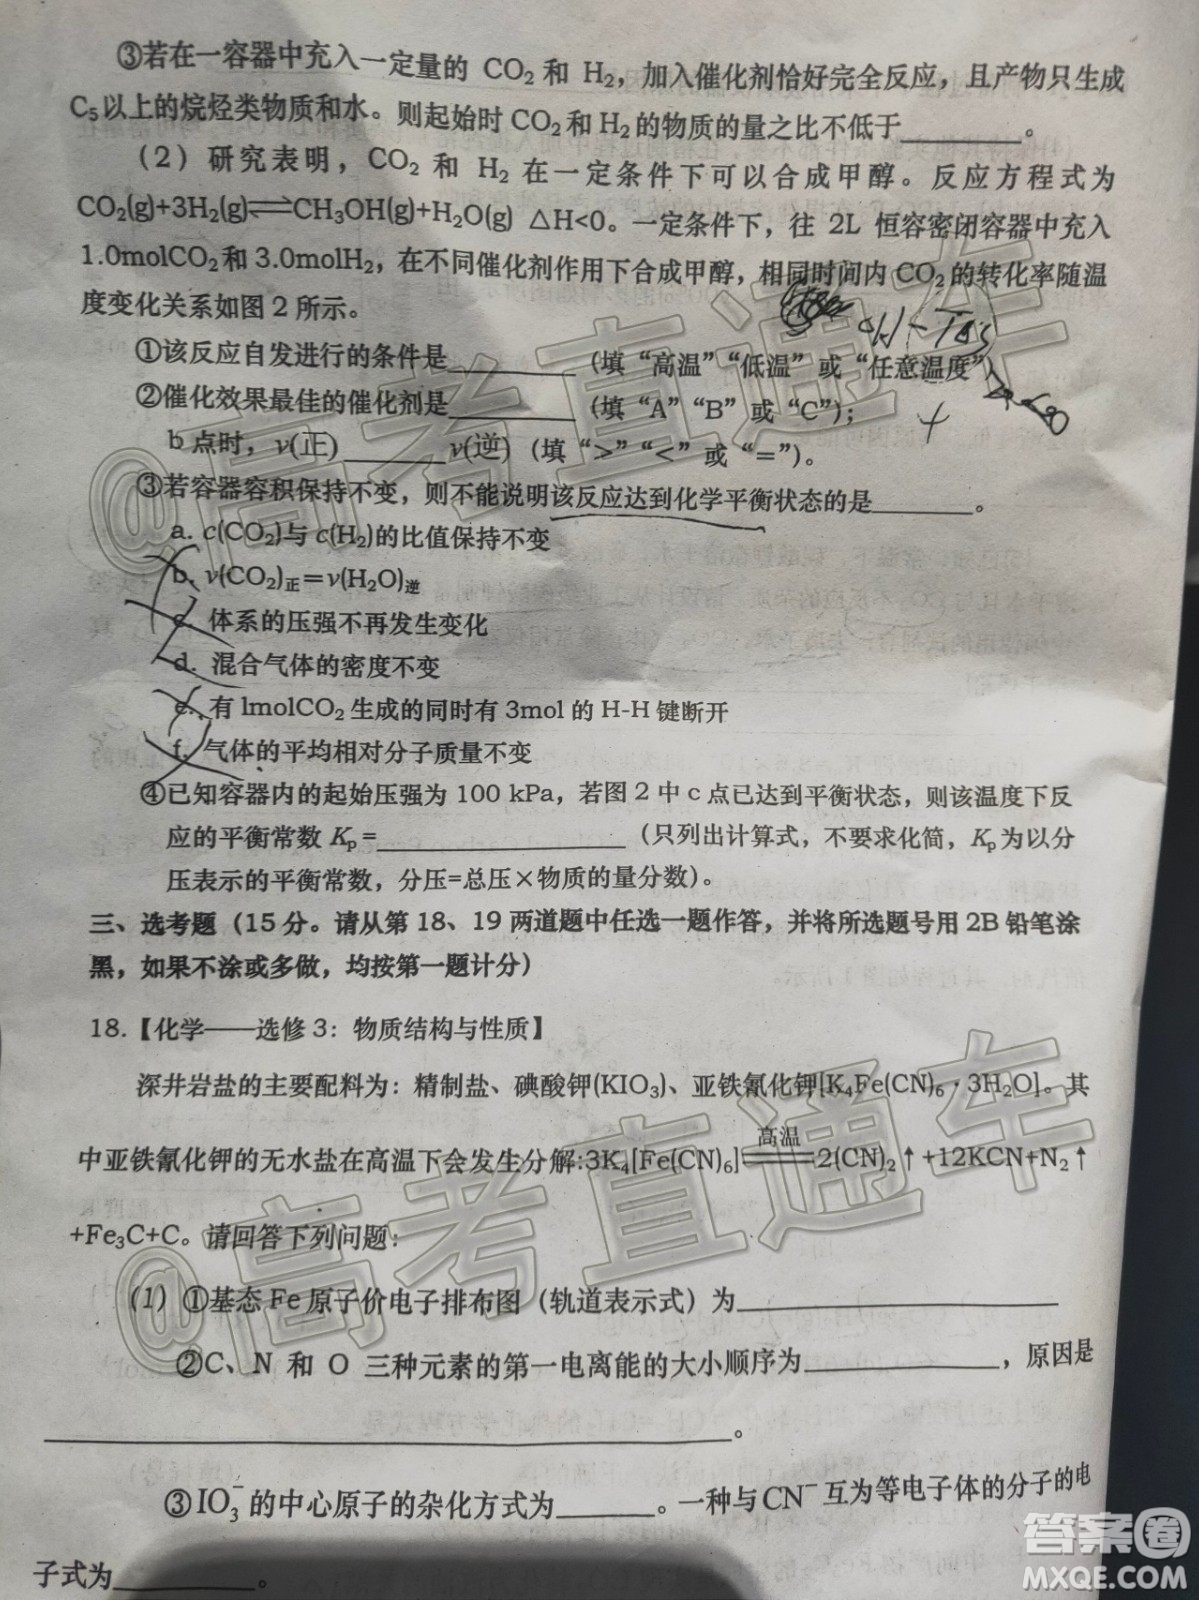 ③若在一容器中充入一定量的 CO₂ 和 H₂，加入催化剂恰好完全反应，且产物只生成
C₅以上的烷烃类物质和水。则起始时 CO₂和 H₂的物质的量之比不低于________。
（2）研究表明，CO₂ 和 H₂ 在一定条件下可以合成甲醇。反应方程式为
CO₂(g)+3H₂(g)⇌CH₃OH(g)+H₂O(g) △H<0。一定条件下，往 2L 恒容密闭容器中充入
1.0molCO₂和 3.0molH₂，在不同催化剂作用下合成甲醇，相同时间内 CO₂的转化率随温
度变化关系如图 2 所示。
①该反应自发进行的条件是________（填“高温”“低温”或“任意温度”）
②催化效果最佳的催化剂是________（填“A”“B”或“C”）；
b 点时，v(正)________v(逆)（填“>”“<”或“=”）。
③若容器容积保持不变，则不能说明该反应达到化学平衡状态的是________。
a. c(CO₂)与 c(H₂)的比值保持不变
b. v(CO₂)正＝v(H₂O)逆
c. 体系的压强不再发生变化
d. 混合气体的密度不变
e. 有 lmolCO₂ 生成的同时有 3mol 的 H-H 键断开
f. 气体的平均相对分子质量不变
④已知容器内的起始压强为 100 kPa，若图 2 中 c 点已达到平衡状态，则该温度下反
应的平衡常数 Kp＝________________（只列出计算式，不要求化简，Kp 为以分
压表示的平衡常数，分压=总压×物质的量分数）。
三、选考题（15 分。请从第 18、19 两道题中任选一题作答，并将所选题号用 2B 铅笔涂
黑，如果不涂或多做，均按第一题计分）
18.【化学——选修 3：物质结构与性质】
深井岩盐的主要配料为：精制盐、碘酸钾(KIO₃)、亚铁氰化钾[K₄Fe(CN)₆·3H₂O]。其
中亚铁氰化钾的无水盐在高温下会发生分解:3K₄[Fe(CN)₆] 高温 ══ 2(CN)₂↑+12KCN+N₂↑
+Fe₃C+C。请回答下列问题：
(1) ①基态 Fe 原子价电子排布图（轨道表示式）为________________
②C、N 和 O 三种元素的第一电离能的大小顺序为____________，原因是
________________________________。
③IO₃⁻的中心原子的杂化方式为______。一种与CN⁻互为等电子体的分子的电
子式为________。
@高考直通车
@高考直通车
答案圈
MXQE.COM